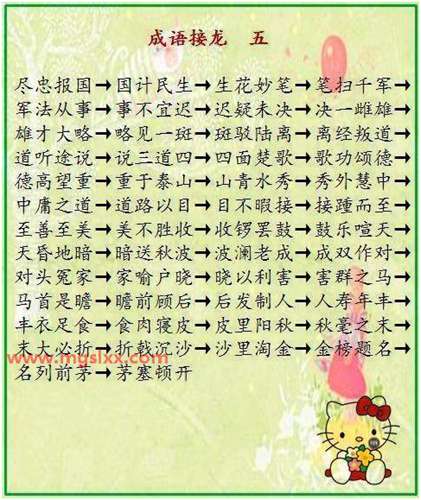 成语接龙 五
尽忠报国→国计民生→生花妙笔→笔扫千军→
军法从事→事不宜迟→迟疑未决→决一雌雄→
雄才大略→略见一斑→斑驳陆离→离经叛道→
道听途说→说三道四→四面楚歌→歌功颂德→
德高望重→重于泰山→山青水秀→秀外慧中→
中庸之道→道路以目→目不暇接→接踵而至→
至善至美→美不胜收→收锣罢鼓→鼓乐喧天→
天昏地暗→暗送秋波→波澜老成→成双作对→
对头冤家→家喻户晓→晓以利害→害群之马→
马首是瞻→瞻前顾后→后发制人→人寿年丰→
丰衣足食→食肉寝皮→皮里阳秋→秋毫之末→
末大必折→折戟沉沙→沙里淘金→金榜题名→
www.mgslxx.com
名列前茅→茅塞顿开